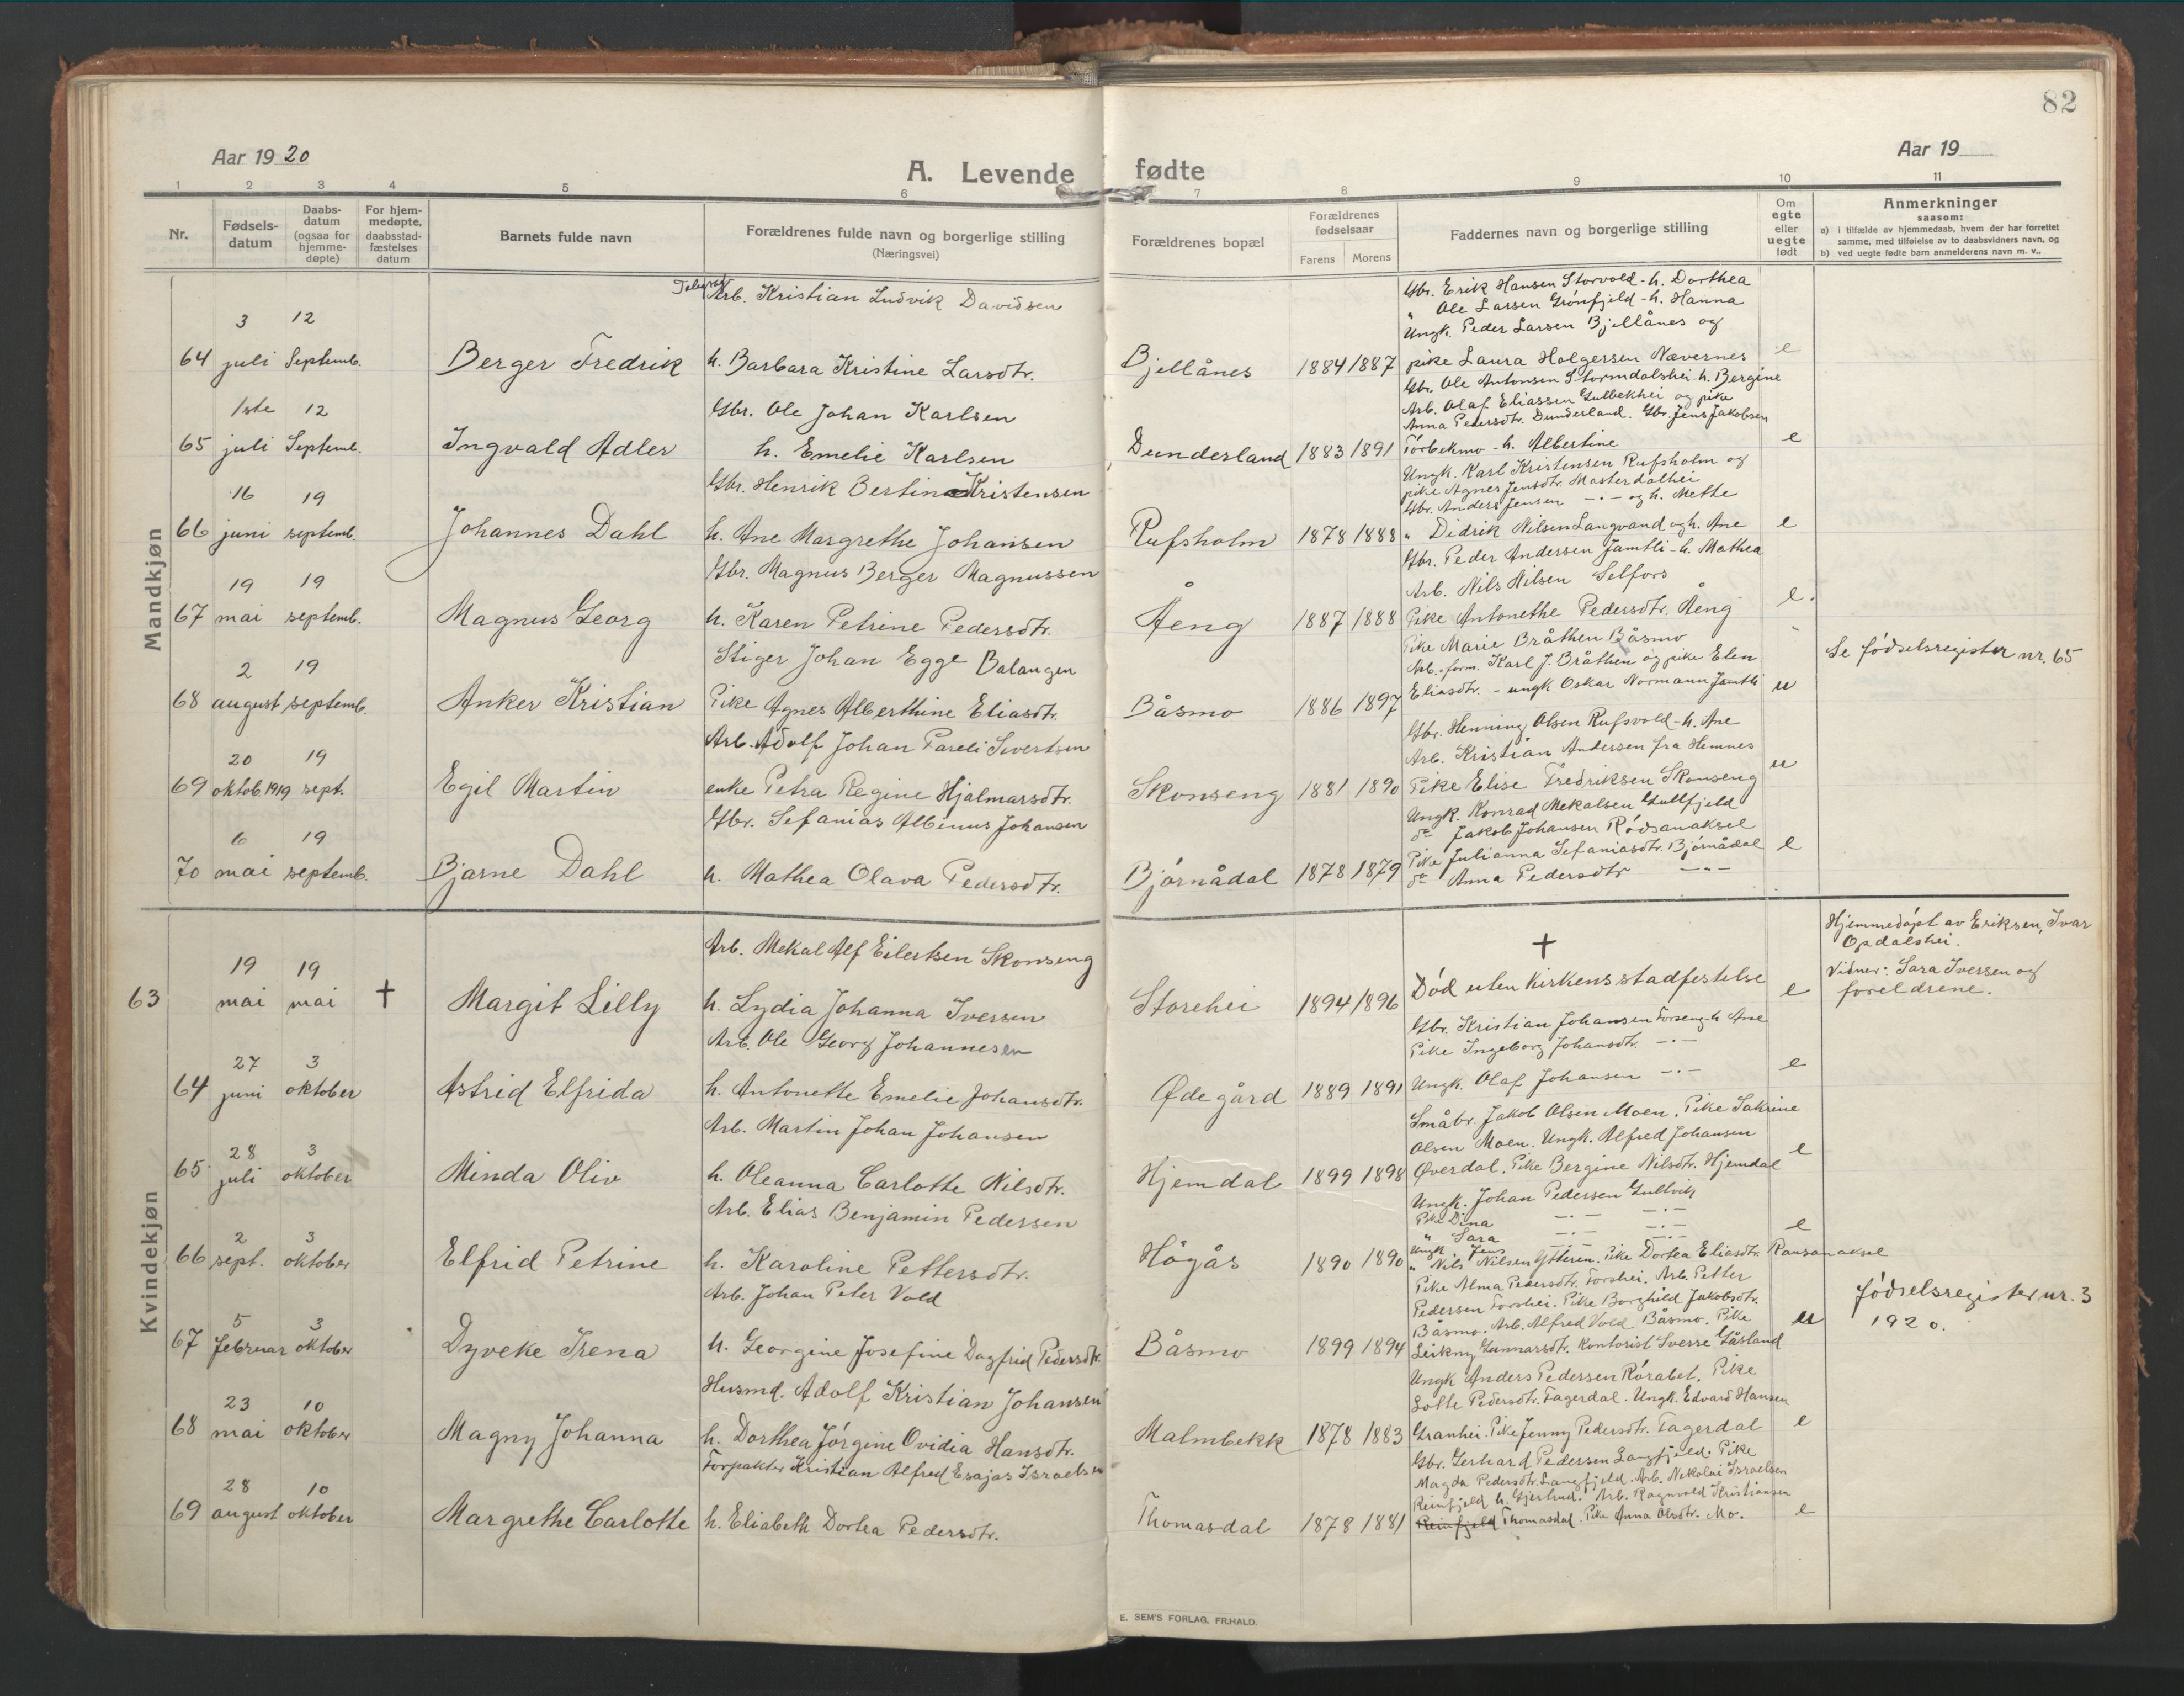 82
Aar 1920
A. Levende fødte
Aar 19
1 2 3 4 5 6 7 8 9 10 11
Nr.
Fødsels-
datum
Daabs-
datum
(ogsaa for
hjemme-
døpte)
For hjem-
medøpte,
daabsstad-
fæstelses
datum
Barnets fulde navn
Forældrenes fulde navn og borgerlige stilling
(Næringsvei)
Forældrenes bopæl
Forældrenes
fødselsaar
Farens Morens
Faddernes navn og borgerlige stilling
Om
egte
eller
uegte
født
Anmerkninger
saasom:
a) i tilfælde av hjemmedaab, hvem der har forrettet
samme, med tilføielse av to daabsvidners navn, og
b) ved uegte fødte barn anmelderens navn m. v..
Mandkjøn
64 3 juli 12 Septemb. Berger Fredrik
Arb. Kristian Ludvik Davidsen
h. Barbara Kristine Larsdtr.
Bjellånes 1884 1887
Gbr. Erik Hansen Storvold - h. Dorthea
" Ole Larsen Grönfjeld - h. Hanna
Ungk. Peder Larsen Bjellånes og
pike Laura Holgersen Nævernes e
65 1ste juli 12 Septemb. Ingvald Adler
Gbr. Ole Johan Karlsen
h. Emelie Karlsen
Dunderland 1883 1891
Gbr. Ole Antonsen Stormdalshei - h. Bergine
Arb. Olaf Eliassen Gulbekhei og pike
Anna Pedersdtr. Dunderland. Gbr. Jens Jakobsen
Törbekmo - h. Albertine e
66 16 juni 19 septemb. Johannes Dahl
Gbr. Henrik Bertin Kristensen
h. Ane Margrethe Johansen
Rufsholm 1878 1888
Ungk. Karl Kristensen Rufsholm og
pike Agnes Jensdtr. Masterdalhei
Gbr. Anders Jensen -"- og h. Mette
" Didrik Nilsen Langvand og h. Ane e
67 19 mai 19 septemb. Magnus Georg
Gbr. Magnus Berger Magnussen
h. Karen Petrine Pedersdtr.
Åeng 1887 1888
Gbr. Peder Andersen Jamtli - h. Mathea
Arb. Nils Nilsen Selfors
Pike Antonethe Pedersdtr. Åeng e.
68 2 august 19 septemb. Anker Kristian
Stiger Johan Egge Balangen
Pike Agnes Alberthine Eliasdtr.
Båsmo 1886 1897
Pike Marie Bråthen Båsmo
Arb. form. Karl J. Bråthen og pike Elen
Eliasdtr. - ungk Oskar Normann Jamtli u
Se fødselsregister nr. 65
69 20 oktob. 1919 19 sept. Egil Martin
Arb. Adolf Johan Pareli Sivertsen
enke Petra Regine Hjalmarsdtr.
Skonseng 1881 1890
Gbr. Henning Olsen Rufsvold - h. Ane
Arb. Kristian Andersen fra Hemnes
Pike Elise Fredriksen Skonseng u
70 6 mai 19 septemb. Bjarne Dahl
Gbr. Sefanias Albinus Johansen
h. Mathea Olava Pedersdtr.
Björnådal 1878 1879
Ungk. Konrad Mekalsen Gullfjeld
do Jakob Johansen Rödsanaksel
Pike Julianna Sefaniasdtr. Björnådal e
do Anna Pedersdtr -"-
Kvindekjøn
63 19 mai 19 mai † Margit Lilly
Arb. Mekal Alf Eilertsen Skonseng
h. Lydia Johanna Iversen
Storehei 1894 1896
†
Död uten Kirkens stadfestelse e
Hjemmedöpt av Eriksen, Ivar
Opdalshei.
Vidner: Sara Iversen og
foreldrene.
64 27 juni 3 oktober Astrid Elfrida
Arb. Ole Georg Johannesen
h. Antonette Emelie Johansdtr.
Ødegård 1889 1891
Gbr. Kristian Johansen Forseng - h Ane
Pike Ingeborg Johansdtr. -"-
Ungk. Olaf Johansen -"- e
65 28 juli 3 oktober Minda Oliv
Arb. Martin Johan Johansen
h. Oleanna Carlotte Nilsdtr.
Hjemdal 1899 1898
Småbr. Jakob Olsen Moen. Pike Sakrine
Olsen Moen. Ungk. Alfred Johansen
Øverdal. Pike Bergine Nilsdtr. Hjemdal e
66 2 sept. 3 oktober Elfrid Petrine
Arb. Elias Benjamin Pedersen
h. Karoline Pettersdtr.
Högås 1890 1890
Ungk. Johan Pedersen Gullvik
Pike Dina -"- -"-
" Sara -"- -"-
Ungk. Jens -"- -"- e
67 5 februar 3 oktober Dyveke Irena
Arb. Johan Peter Vold
h. Georgine Josefine Dagfrid Pedersdtr.
Båsmo 1899 1894
" Nils Nilsen Ytteren. Pike Dortea Eliasdtr. Ransanaksel
Pike Alma Pedersdtr. Forshei. Arb. Petter
Pedersen Forshei. Pike Borghild Jakobsdtr.
Båsmo. Arb. Alfred Vold Båsmo. Pike
Leikny Gunnarsdtr. Kontorist Sverre Gåsland u
fødselsregister nr. 3
1920.
68 23 mai 10 oktober Magny Johanna
Husmd. Adolf Kristian Johansen
h. Dorthea Jörgine Ovidia Hansdtr.
Malmbekk 1878 1883
Ungk Anders Pedersen Rörabet. Pike
Lotte Pedersdtr. Fagerdal. Ungk. Edvard Hansen
Granhei. Pike Jenny Pedersdtr. Fagerdal e
69 28 august 10 oktober Margrethe Carlotte
Forpakter Kristian Alfred Esajas Israelsen
h. Eliabeth Dortea Pedersdtr.
Thomasdal 1878 1881
Gbr. Gerhard Pedersen Langfjeld. Pike
Magda Pedersdtr. Langfjeld. Arb. Nikolai Israelsen
Reinfjeld h. Gjertrud. Arb. Ragnvald Kristiansen
Reinfjeld Thomasdal. Pike Anna Olsdtr. Mo. e
E. SEM'S FORLAG, FR.HALD.